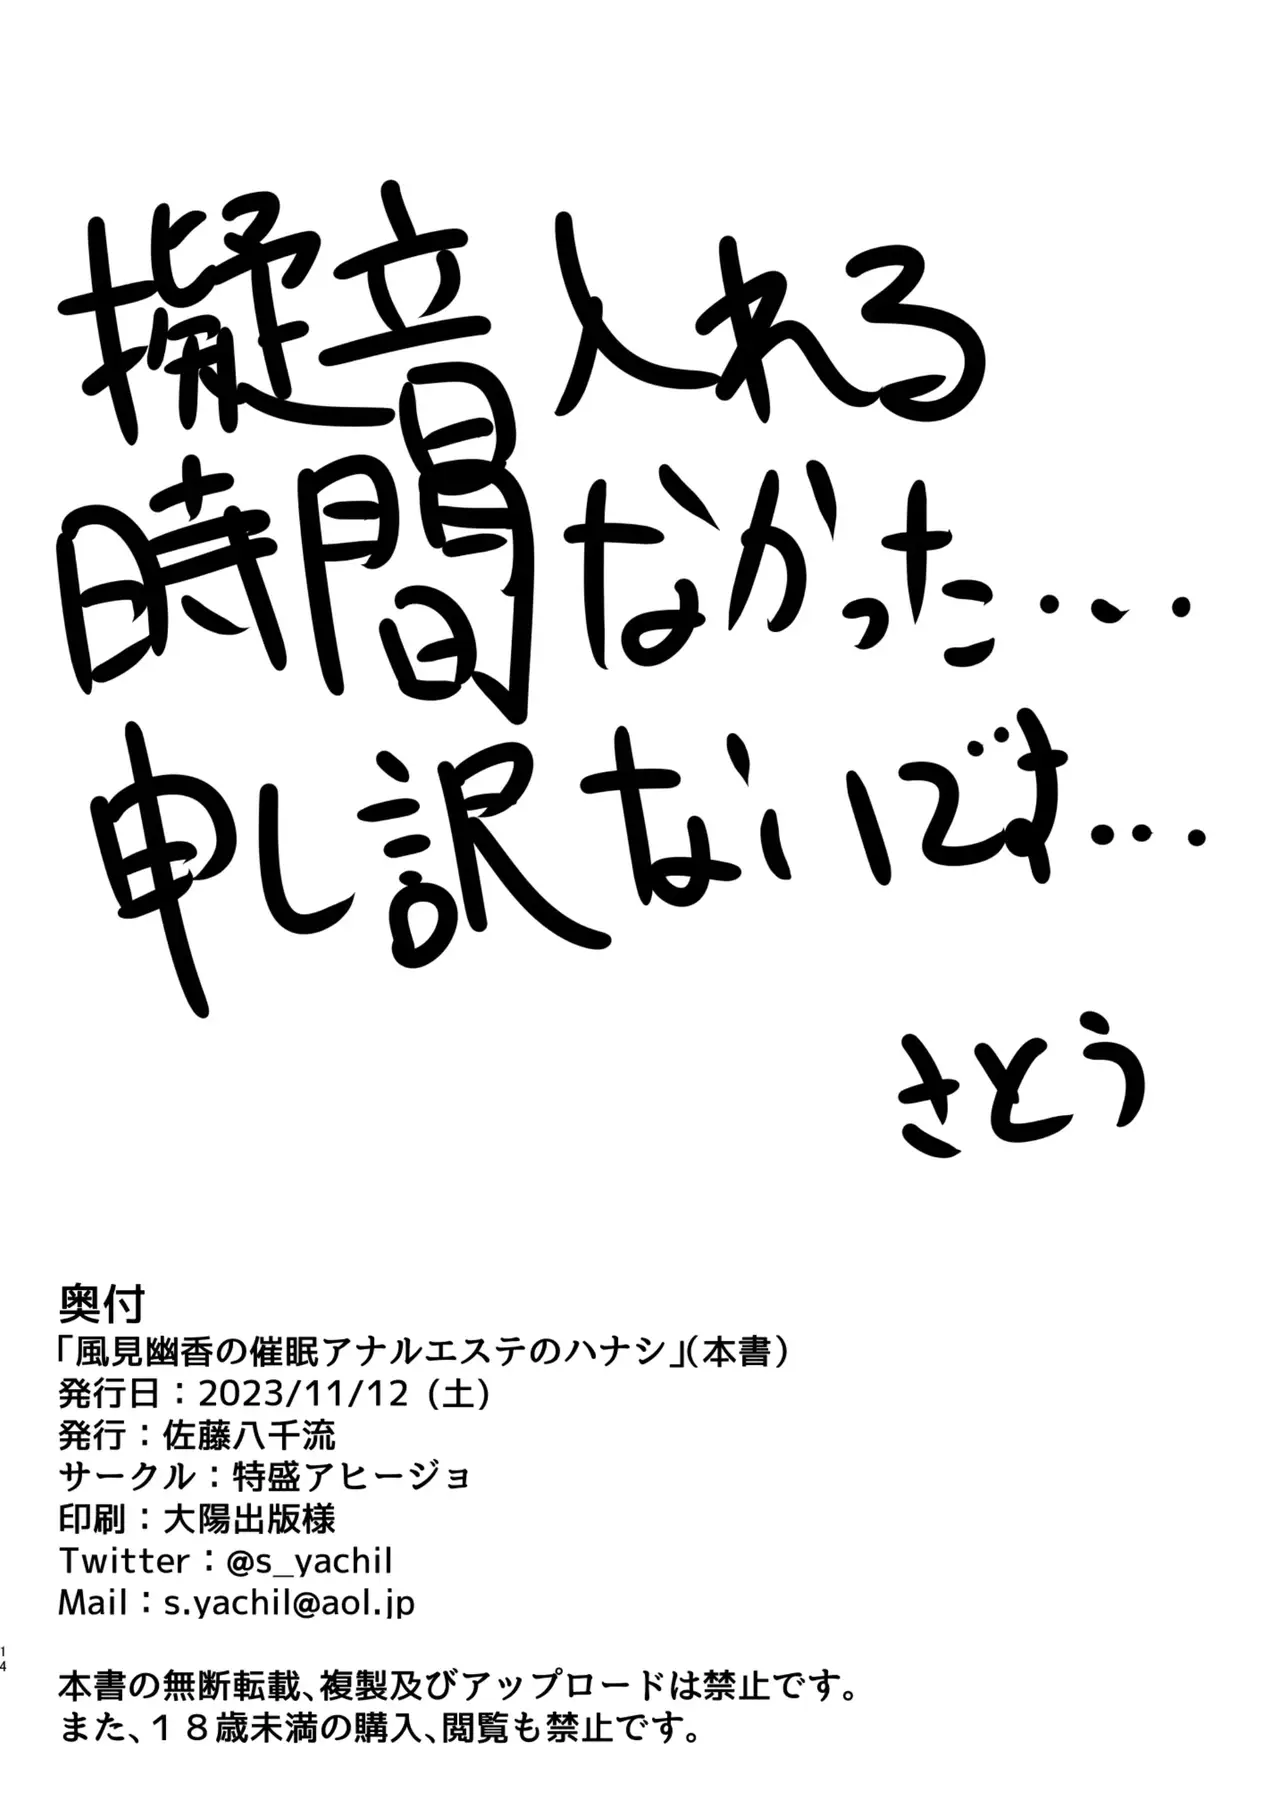 擬音入れる
時間なかった・・・
申し訳ないです・・・
さとう
奥付
「風見幽香の催眠アナルエステのハナシ」(本書)
発行日：2023/11/12 (土)
発行：佐藤八千流
サークル：特盛アヒージョ
印刷：大陽出版様
Twitter：@s_yachil
Mail：s.yachil@aol.jp
14
本書の無断転載、複製及びアップロードは禁止です。
また、１８歳未満の購入、閲覧も禁止です。